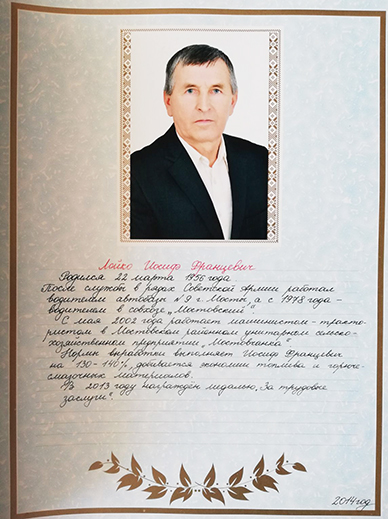 Лойко Иосиф Францевич
Родился 22 марта 1956 года.
После службы в рядах Советской Армии работал
водителем автобаза №9 г. Мосты, а с 1978 года -
водителем в совхозе „Мостовский".
С мая 2002 года работает машинистом-тракто-
ристом в Мостовском районном унитарном сельско-
хозяйственном предприятии „Мостовчанка"
Нормы выработки выполняет Иосиф Францевич
на 130-140% добивается экономии топлива и горюче-
смазочных материалов.
В 2013 году награждён медалью „За трудовые
заслуги".
2014 год